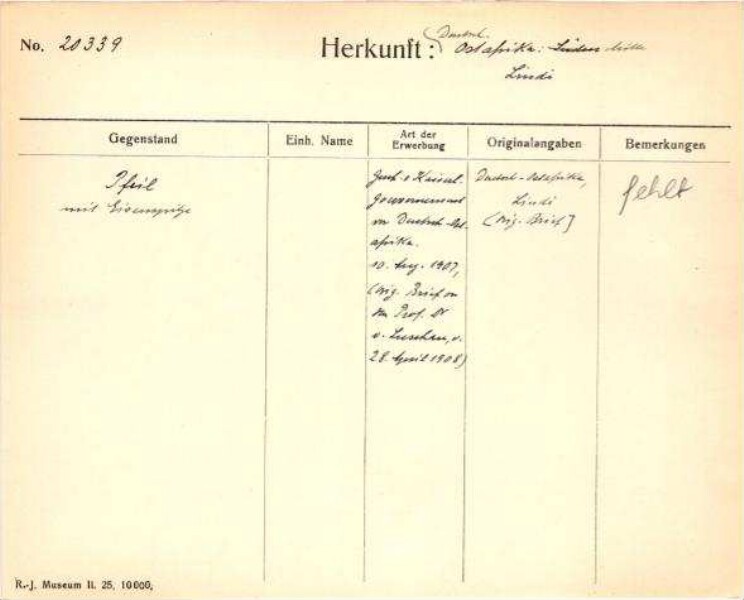 No. 20339
Herkunft: Deutsch. Ostafrika:
Lindi
Gegenstand
Einh. Name
Art der Erwerbung
Originalangaben
Bemerkungen
Pfeil
mit Eisenspitze
Gesch. v Kaiserl.
Gouvernement
von Deutsch-Ost-
afrika.
10. Aug. 1907,
(Orig. Brief von
Prof. Dr
v. Luschan, v.
28 April 1908)
Deutsch-Ostafrika,
Lindi
(Orig. Brief]
fehlt
R.-J. Museum II. 25, 10000,